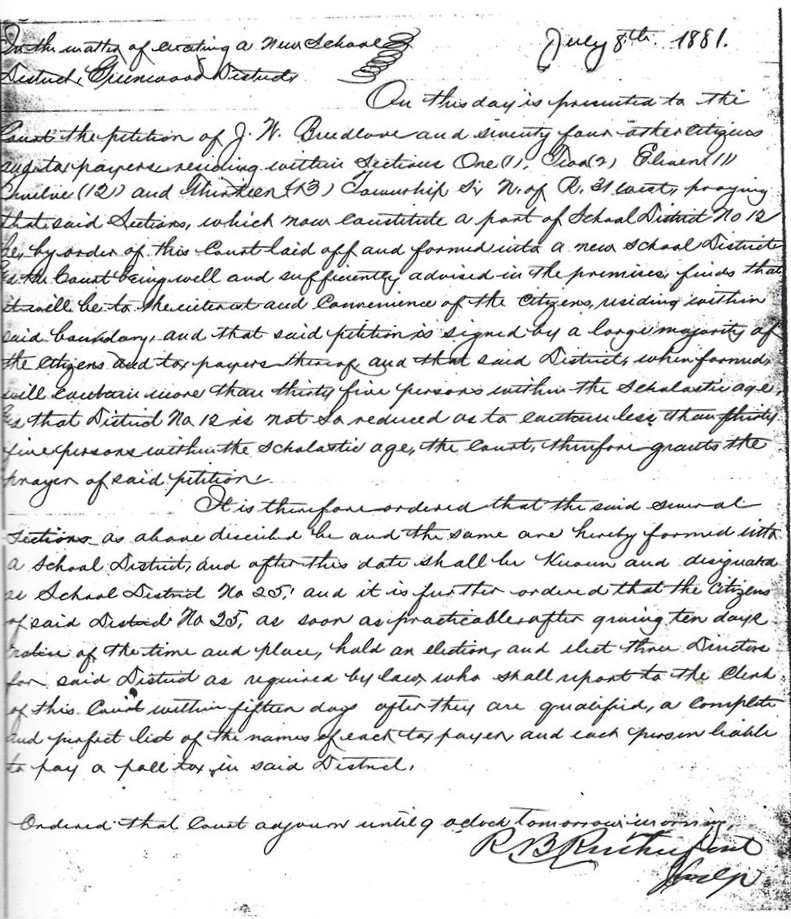 In the matter of creating a New School
July 8th. 1881.
District, Greenwood District
On this day is presented to the
Court the petition of J. W. Breedlove and seventy four other citizens
and tax payers residing within Sections One (1), Two (2) Eleven (11)
Twelve (12) and Thirteen (13) Township Six N. of R. 31 West, praying
that said Sections, which now constitute a part of School District No 12
be, by order of this Court laid off and formed into a new School District
& the Court being well and sufficiently advised in the premises, finds that
it will be to the interest and Convenience of the Citizens, residing within
said boundary, and that said petition is signed by a large majority of
the Citizens and tax payers thereof and that said District, when formed,
will contain more than thirty five persons within the Scholastic age,
& that District No. 12 is not so reduced as to contain less than thirty
five persons within the Scholastic age, the Court, therefore grants the
prayer of said petition.
It is therefore ordered that the said several
Sections as above described be and the same are hereby formed into
a School District, and after this date shall be Known and designated
as School District No 25, and it is further ordered that the Citizens
of said District No 25, as soon as practicable after giving ten days
notice of the time and place, hold an election, and elect three Directors
for said District as required by law, who shall report to the Clerk
of this Court within fifteen days after they are qualified, a complete
and perfect list of the names of each tax payer, and each person liable
to pay a poll tax, in said District.
Ordered that Court adjourn until 9 oclock tomorrow morning,
R B Rutherford